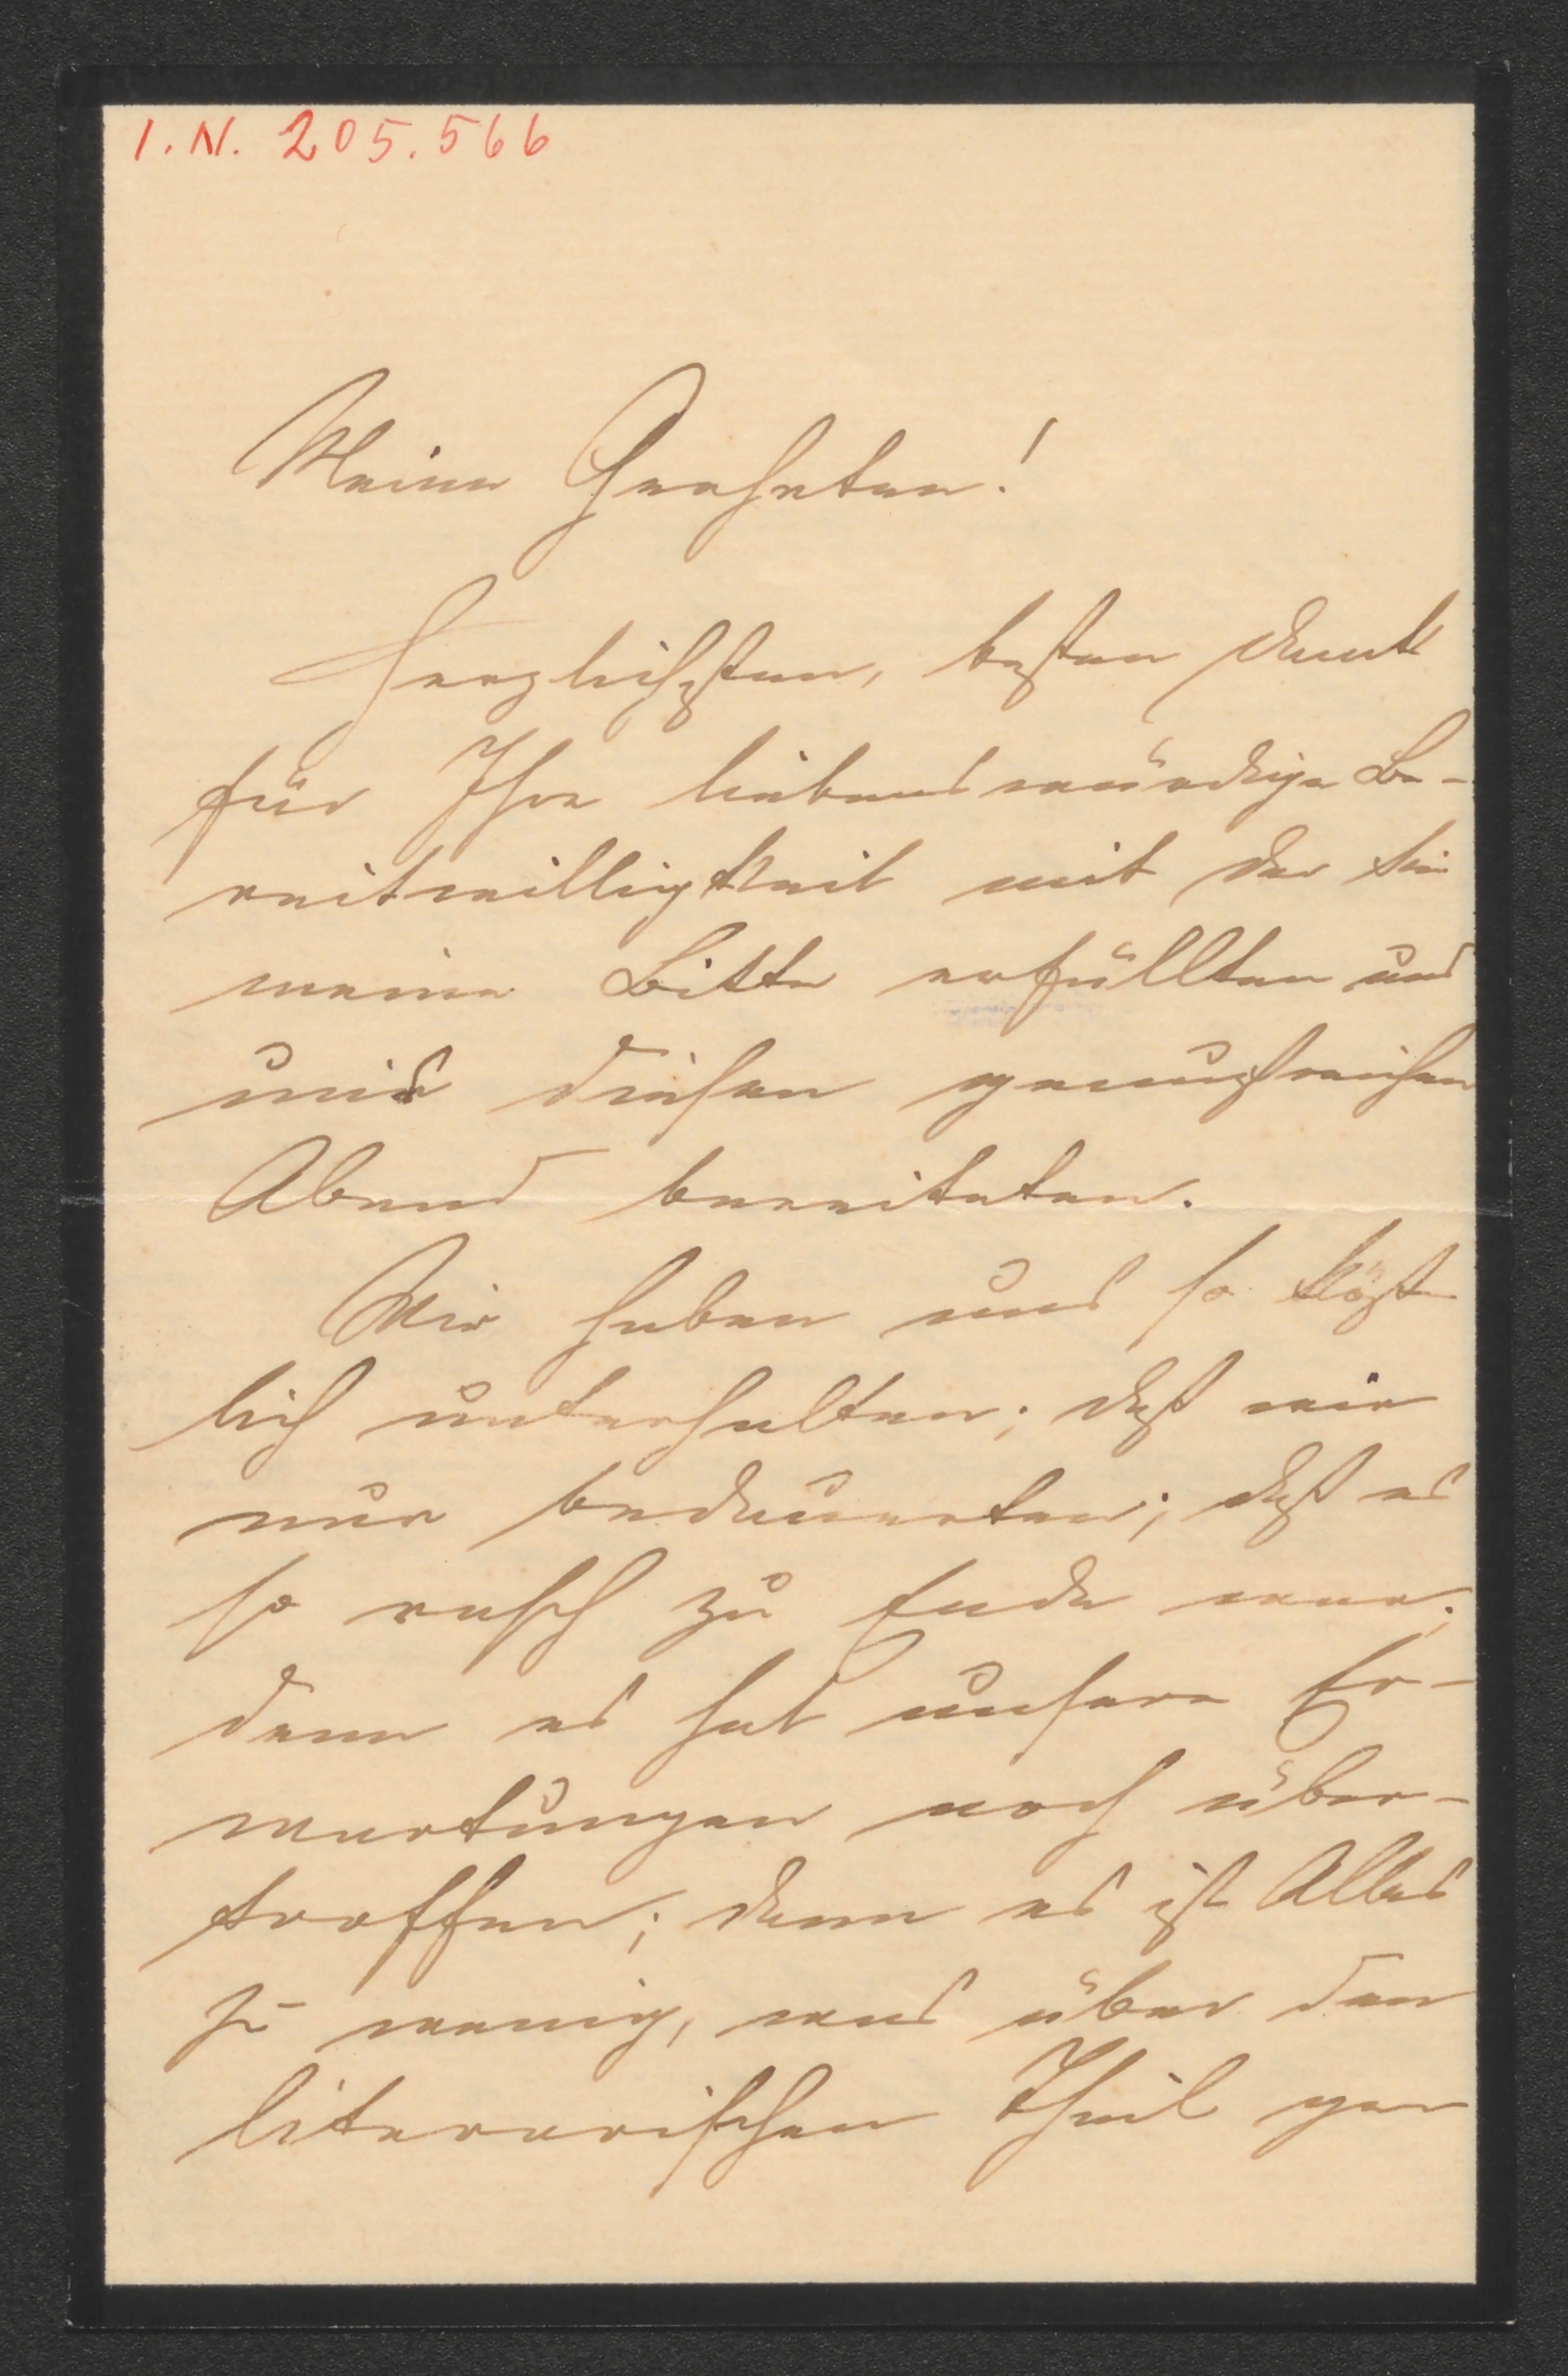 I.N. 205.566
Meine Geehrten!
Herzlichsten, besten Dank
für Ihre liebenswürdige Be-
reitwilligkeit mit der Sie
meine Bitte erfüllten und
uns diesen genußreichen
Abend bereiteten.
Wir haben uns so köst
lich unterhalten; daß wir
nur bedauerten; daß es
so rasch zu Ende war;
denn es hat unsere Er-
wartungen noch über-
troffen; denn es ist Alles
zu wenig, was über den
literarischen Theil ge